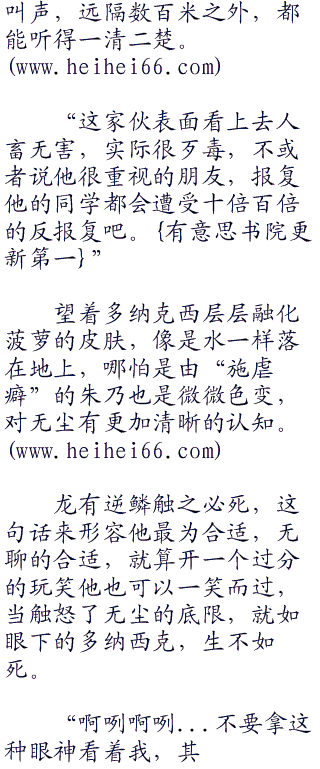 叫声，远隔数百米之外，都
能听得一清二楚。
(www.heihei66.com)
“这家伙表面看上去人
畜无害，实际很歹毒，不或
者说他很重视的朋友，报复
他的同学都会遭受十倍百倍
的反报复吧。{有意思书院更
新第一}”
望着多纳克西层层融化
菠萝的皮肤，像是水一样落
在地上，哪怕是由“施虐
癖”的朱乃也是微微色变，
对无尘有更加清晰的认知。
(www.heihei66.com)
龙有逆鳞触之必死，这
句话来形容他最为合适，无
聊的合适，就算开一个过分
的玩笑他也可以一笑而过，
当触怒了无尘的底限，就如
眼下的多纳西克，生不如
死。
“啊咧啊咧...不要拿这
种眼神看着我，其